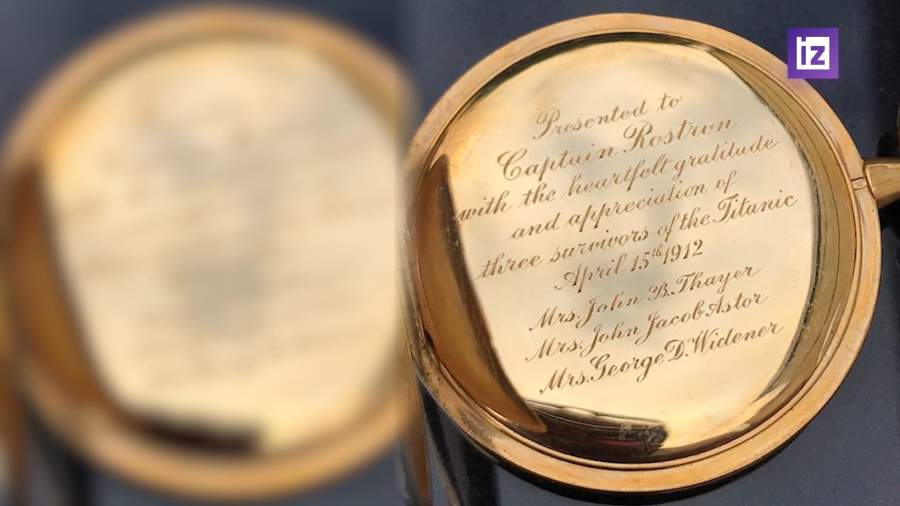 iz
Presented to
Captain Rostron
with the heartfelt gratitude
and appreciation of
three survivors of the Titanic
April 15th 1912
Mrs. John B. Thayer
Mrs. John Jacob Astor
Mrs. George D. Widener